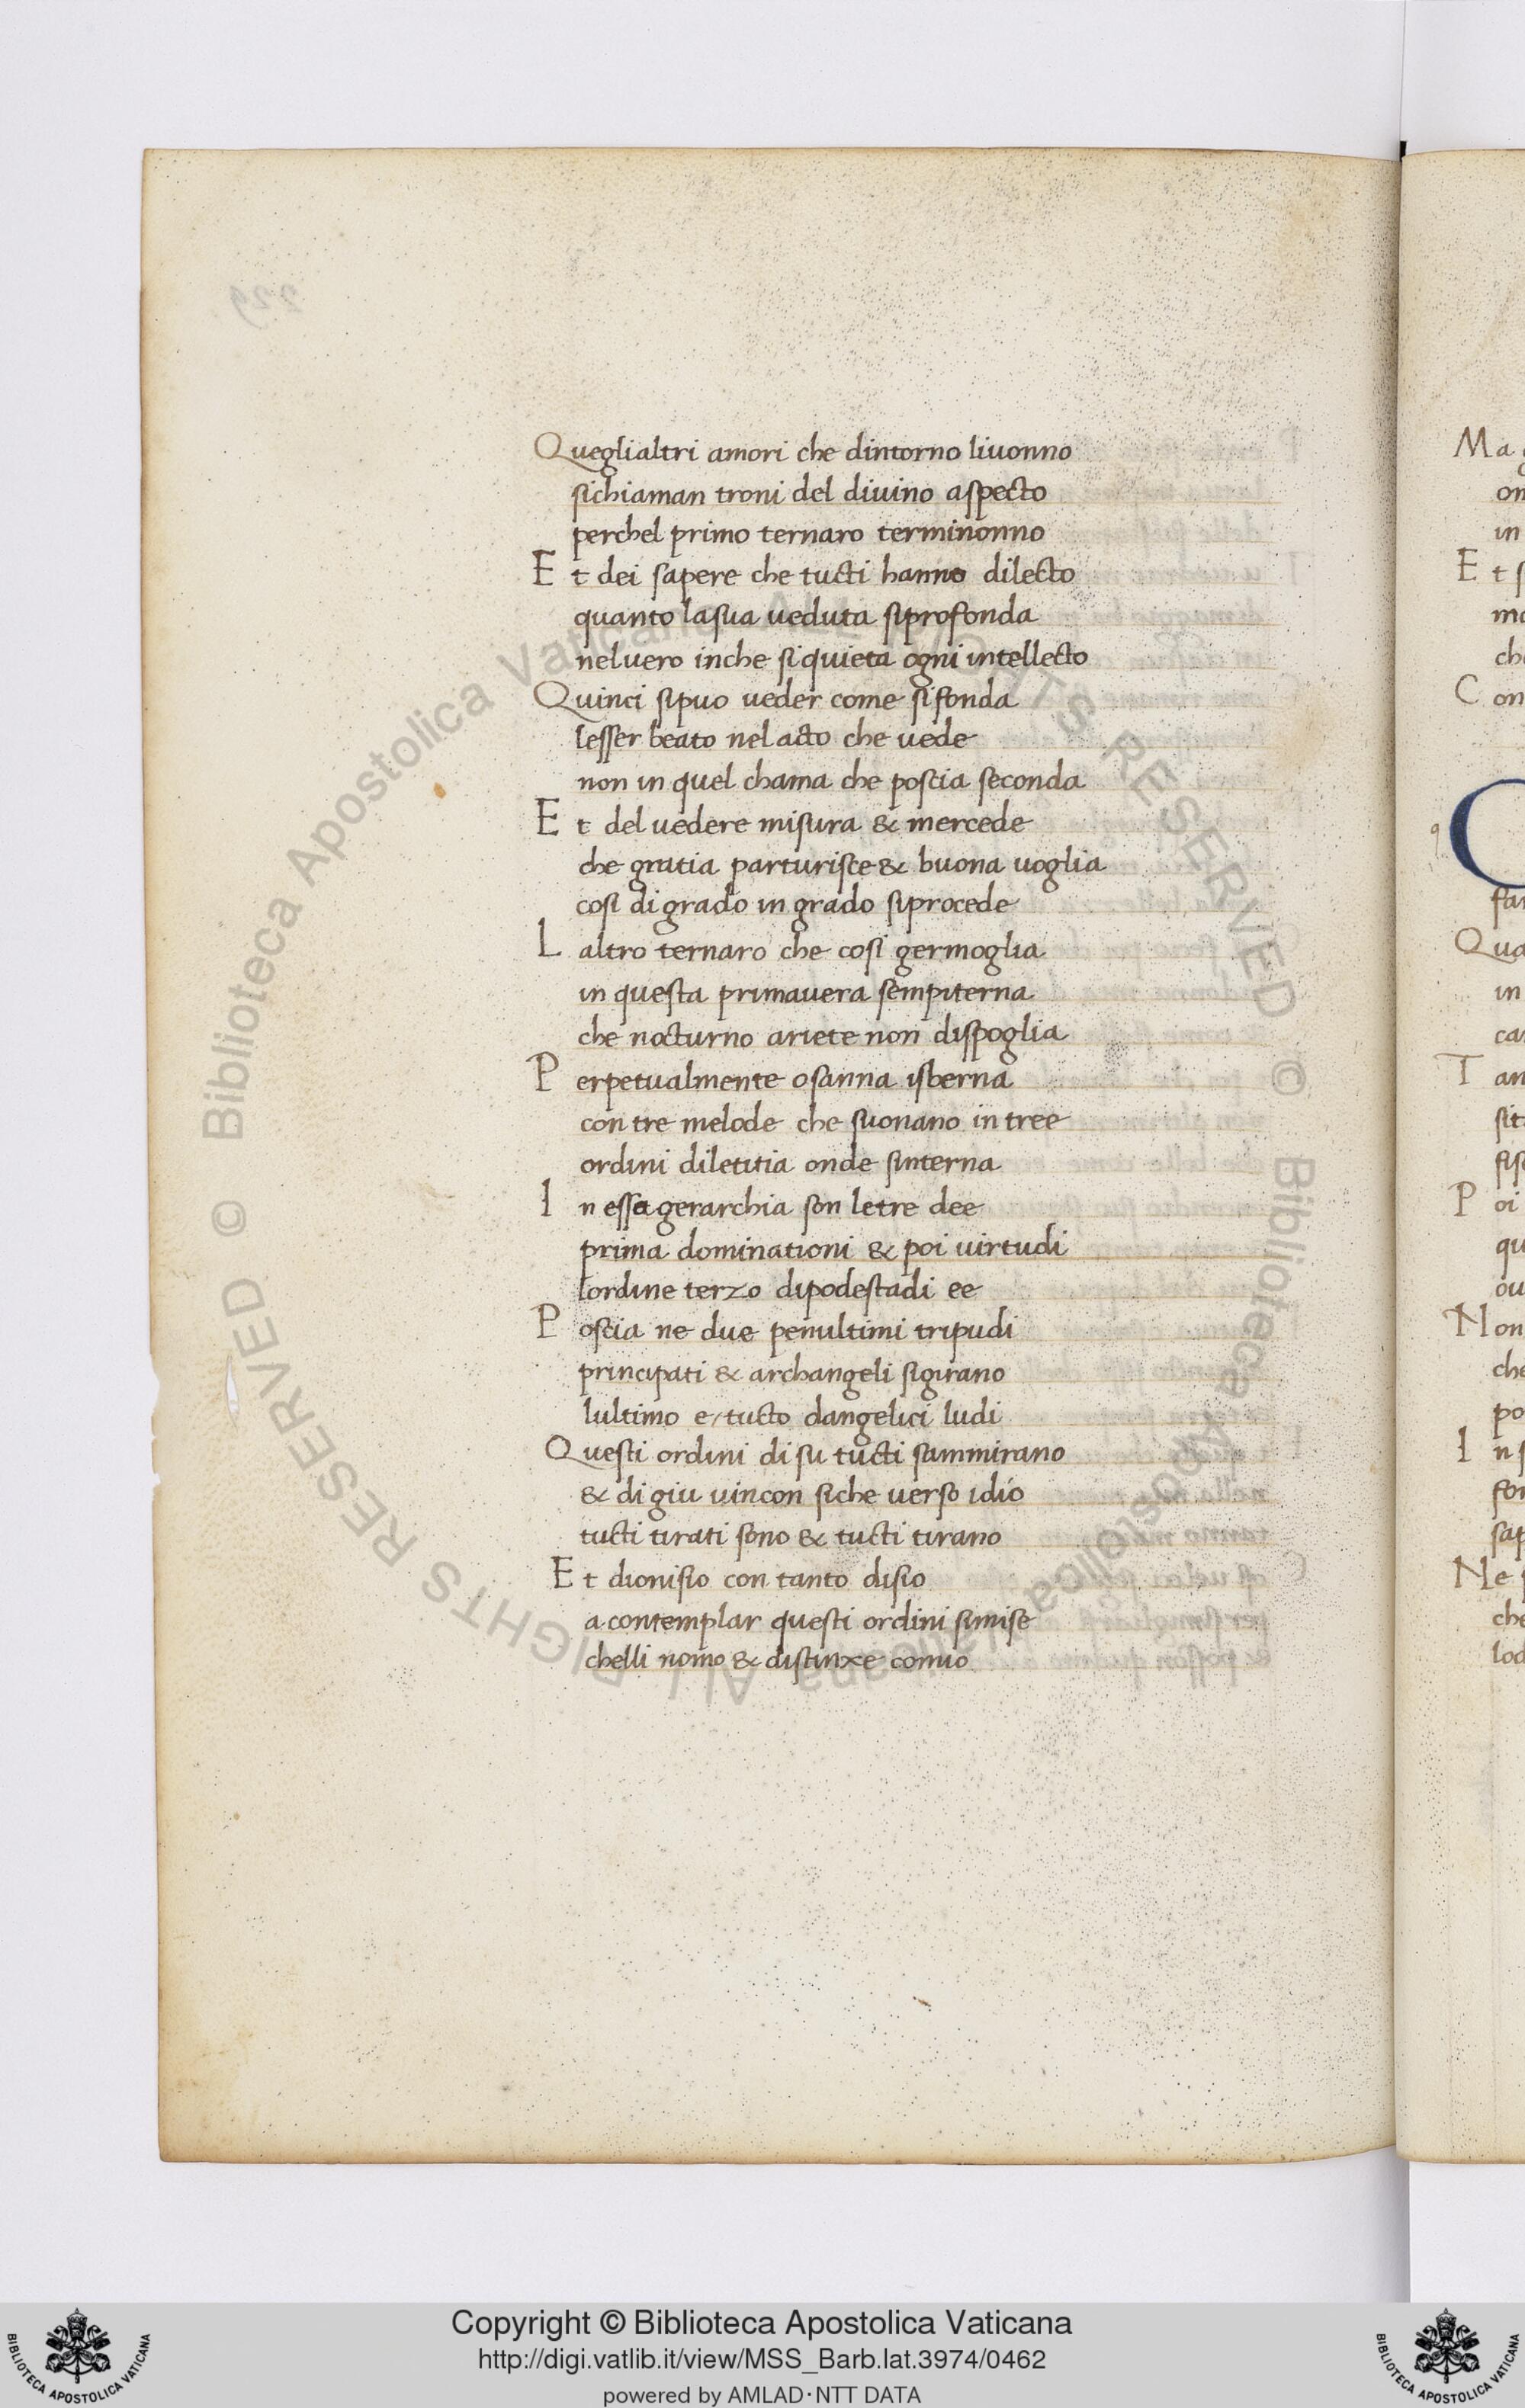 Queglialtri amori che dintorno liuonno
sichiaman troni del diuino aspecto
perchel primo ternaro terminonno
Et dei sapere che tucti hanno dilecto
quanto lasua ueduta siprofonda
neluero inche siquieta ogni intellecto
Quinci sipuo ueder come sifonda
lesser beato nelacto che uede
non in quel chama che poscia seconda
Et del uedere misura & mercede
che gratia parturisce & buona uoglia
cosi di grado in grado siprocede
Laltro ternaro che cosi germoglia
in questa primauera sempiterna
che nocturno ariete non dispoglia
Perpetualmente osanna isberna
con tre melode che suonano in tree
ordini diletitia onde sinterna
In essa gerarchia son letre dee
prima dominationi & poi uirtudi
lordine terzo dipodestadi ee
Poscia ne due penultimi tripudi
principati & archangeli sigirano
lultimo e/tucto dangelici ludi
Questi ordini di su tucti sammirano
& di giu uincon siche uerso idio
tucti tirati sono & tucti tirano
Et dionisio con tanto disio
a contemplar questi ordini simise
chelli nomo & distinxe comio
Ma
on
in
Et s
ma
che
Con
C
fa
Qua
in
ca
Tan
sit
fis
Poi
qu
ou
Non
che
po
In s
for
sap
Ne
che
lod
229
© Biblioteca Apostolica Vaticana ALL RIGHTS RESERVED © Biblioteca Apostolica Vaticana ALL RIGHTS RESERVED
Copyright © Biblioteca Apostolica Vaticana
http://digi.vatlib.it/view/MSS_Barb.lat.3974/0462
powered by AMLAD·NTT DATA
BIBLIOTECA APOSTOLICA VATICANA
BIBLIOTECA APOSTOLICA VATICANA